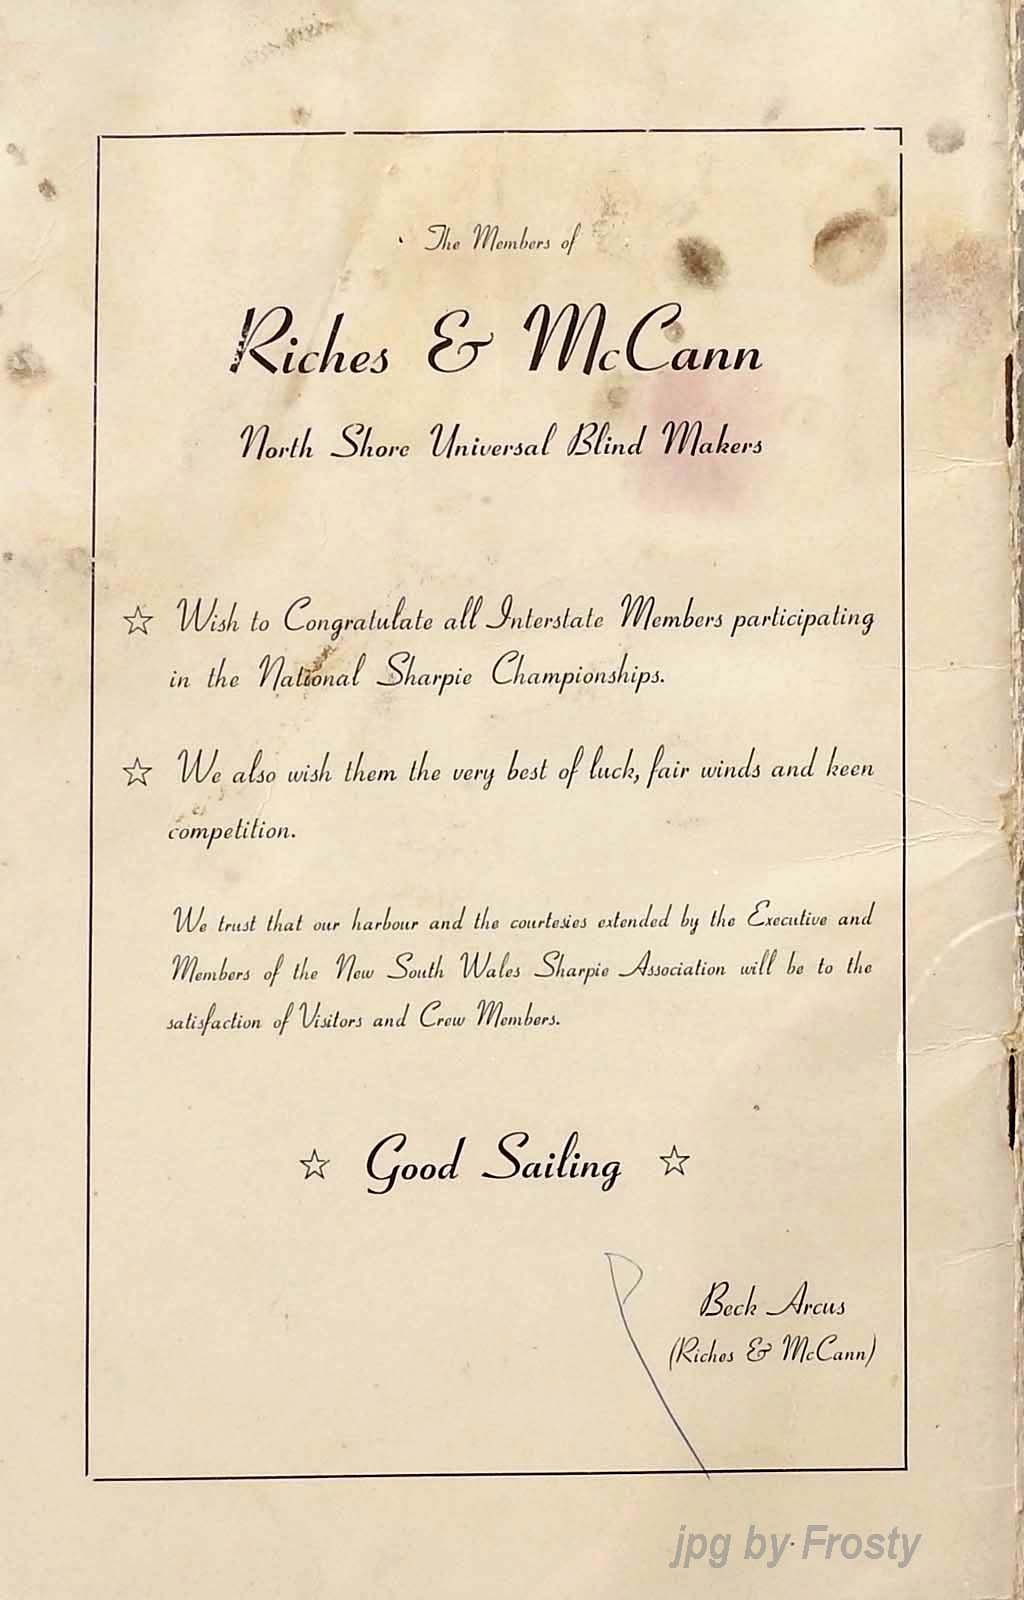 The Members of
Riches & McCann
North Shore Universal Blind Makers
☆ Wish to Congratulate all Interstate Members participating
in the National Sharpie Championships.
☆ We also wish them the very best of luck, fair winds and keen
competition.
We trust that our harbour and the courtesies extended by the Executive and
Members of the New South Wales Sharpie Association will be to the
satisfaction of Visitors and Crew Members.
☆ Good Sailing ☆
Beck Arcus
(Riches & McCann)
jpg by Frosty